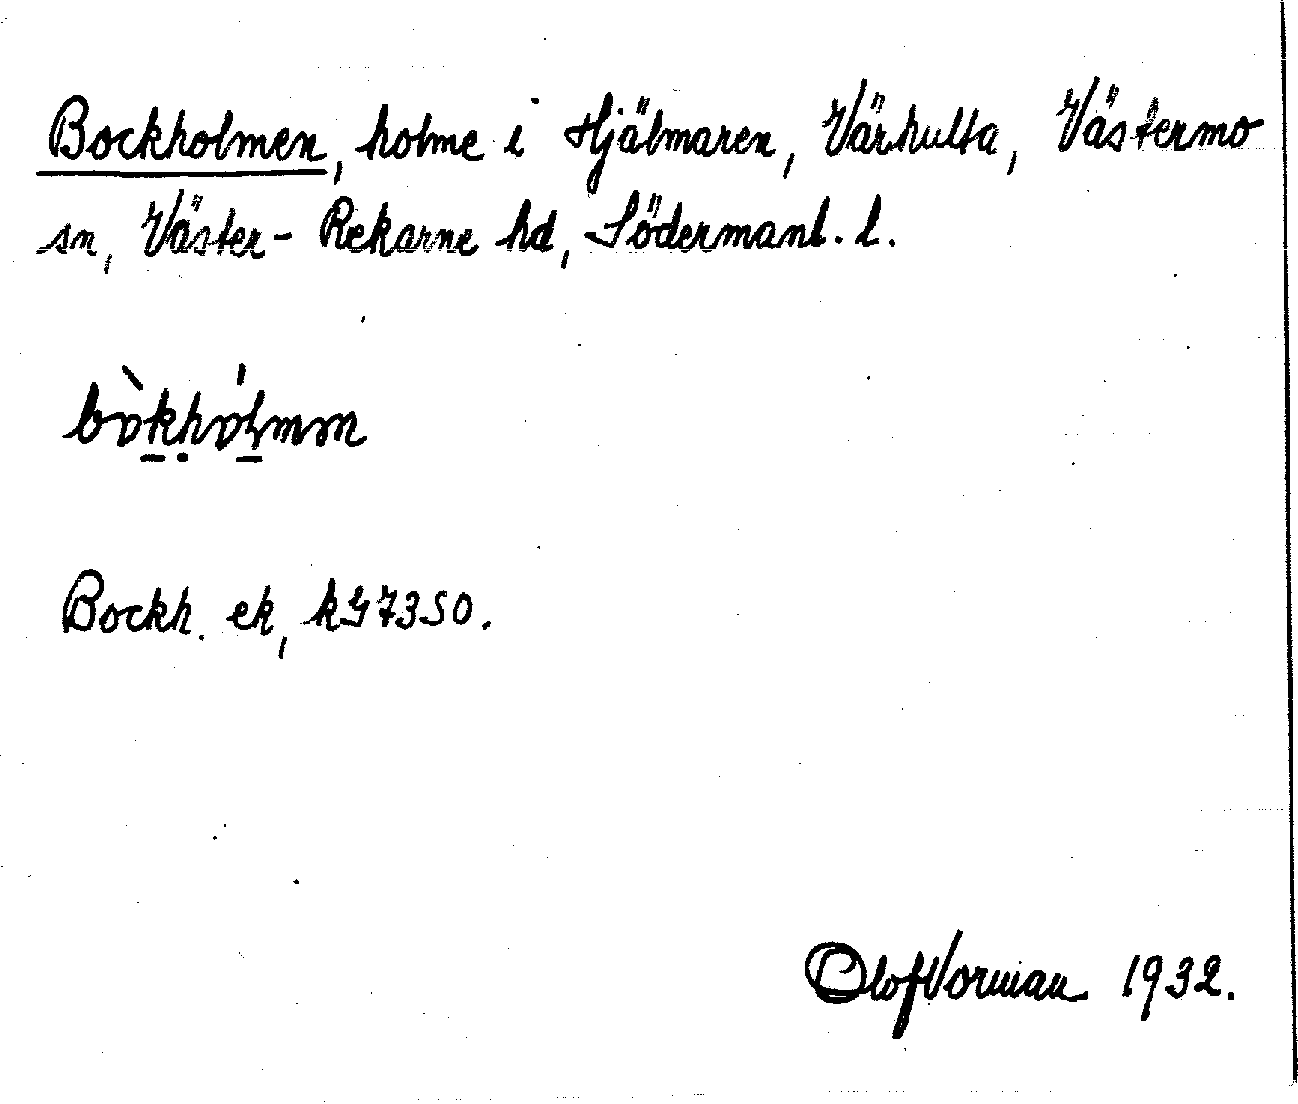 Bockholmen, holme i Hjälmaren, Värhulta, Västermo
sn, Väster-Rekarne hd, Södermanl. l.
bòkhólmən
Bockh. ek, kG7350.
Olof Vorman 1932.